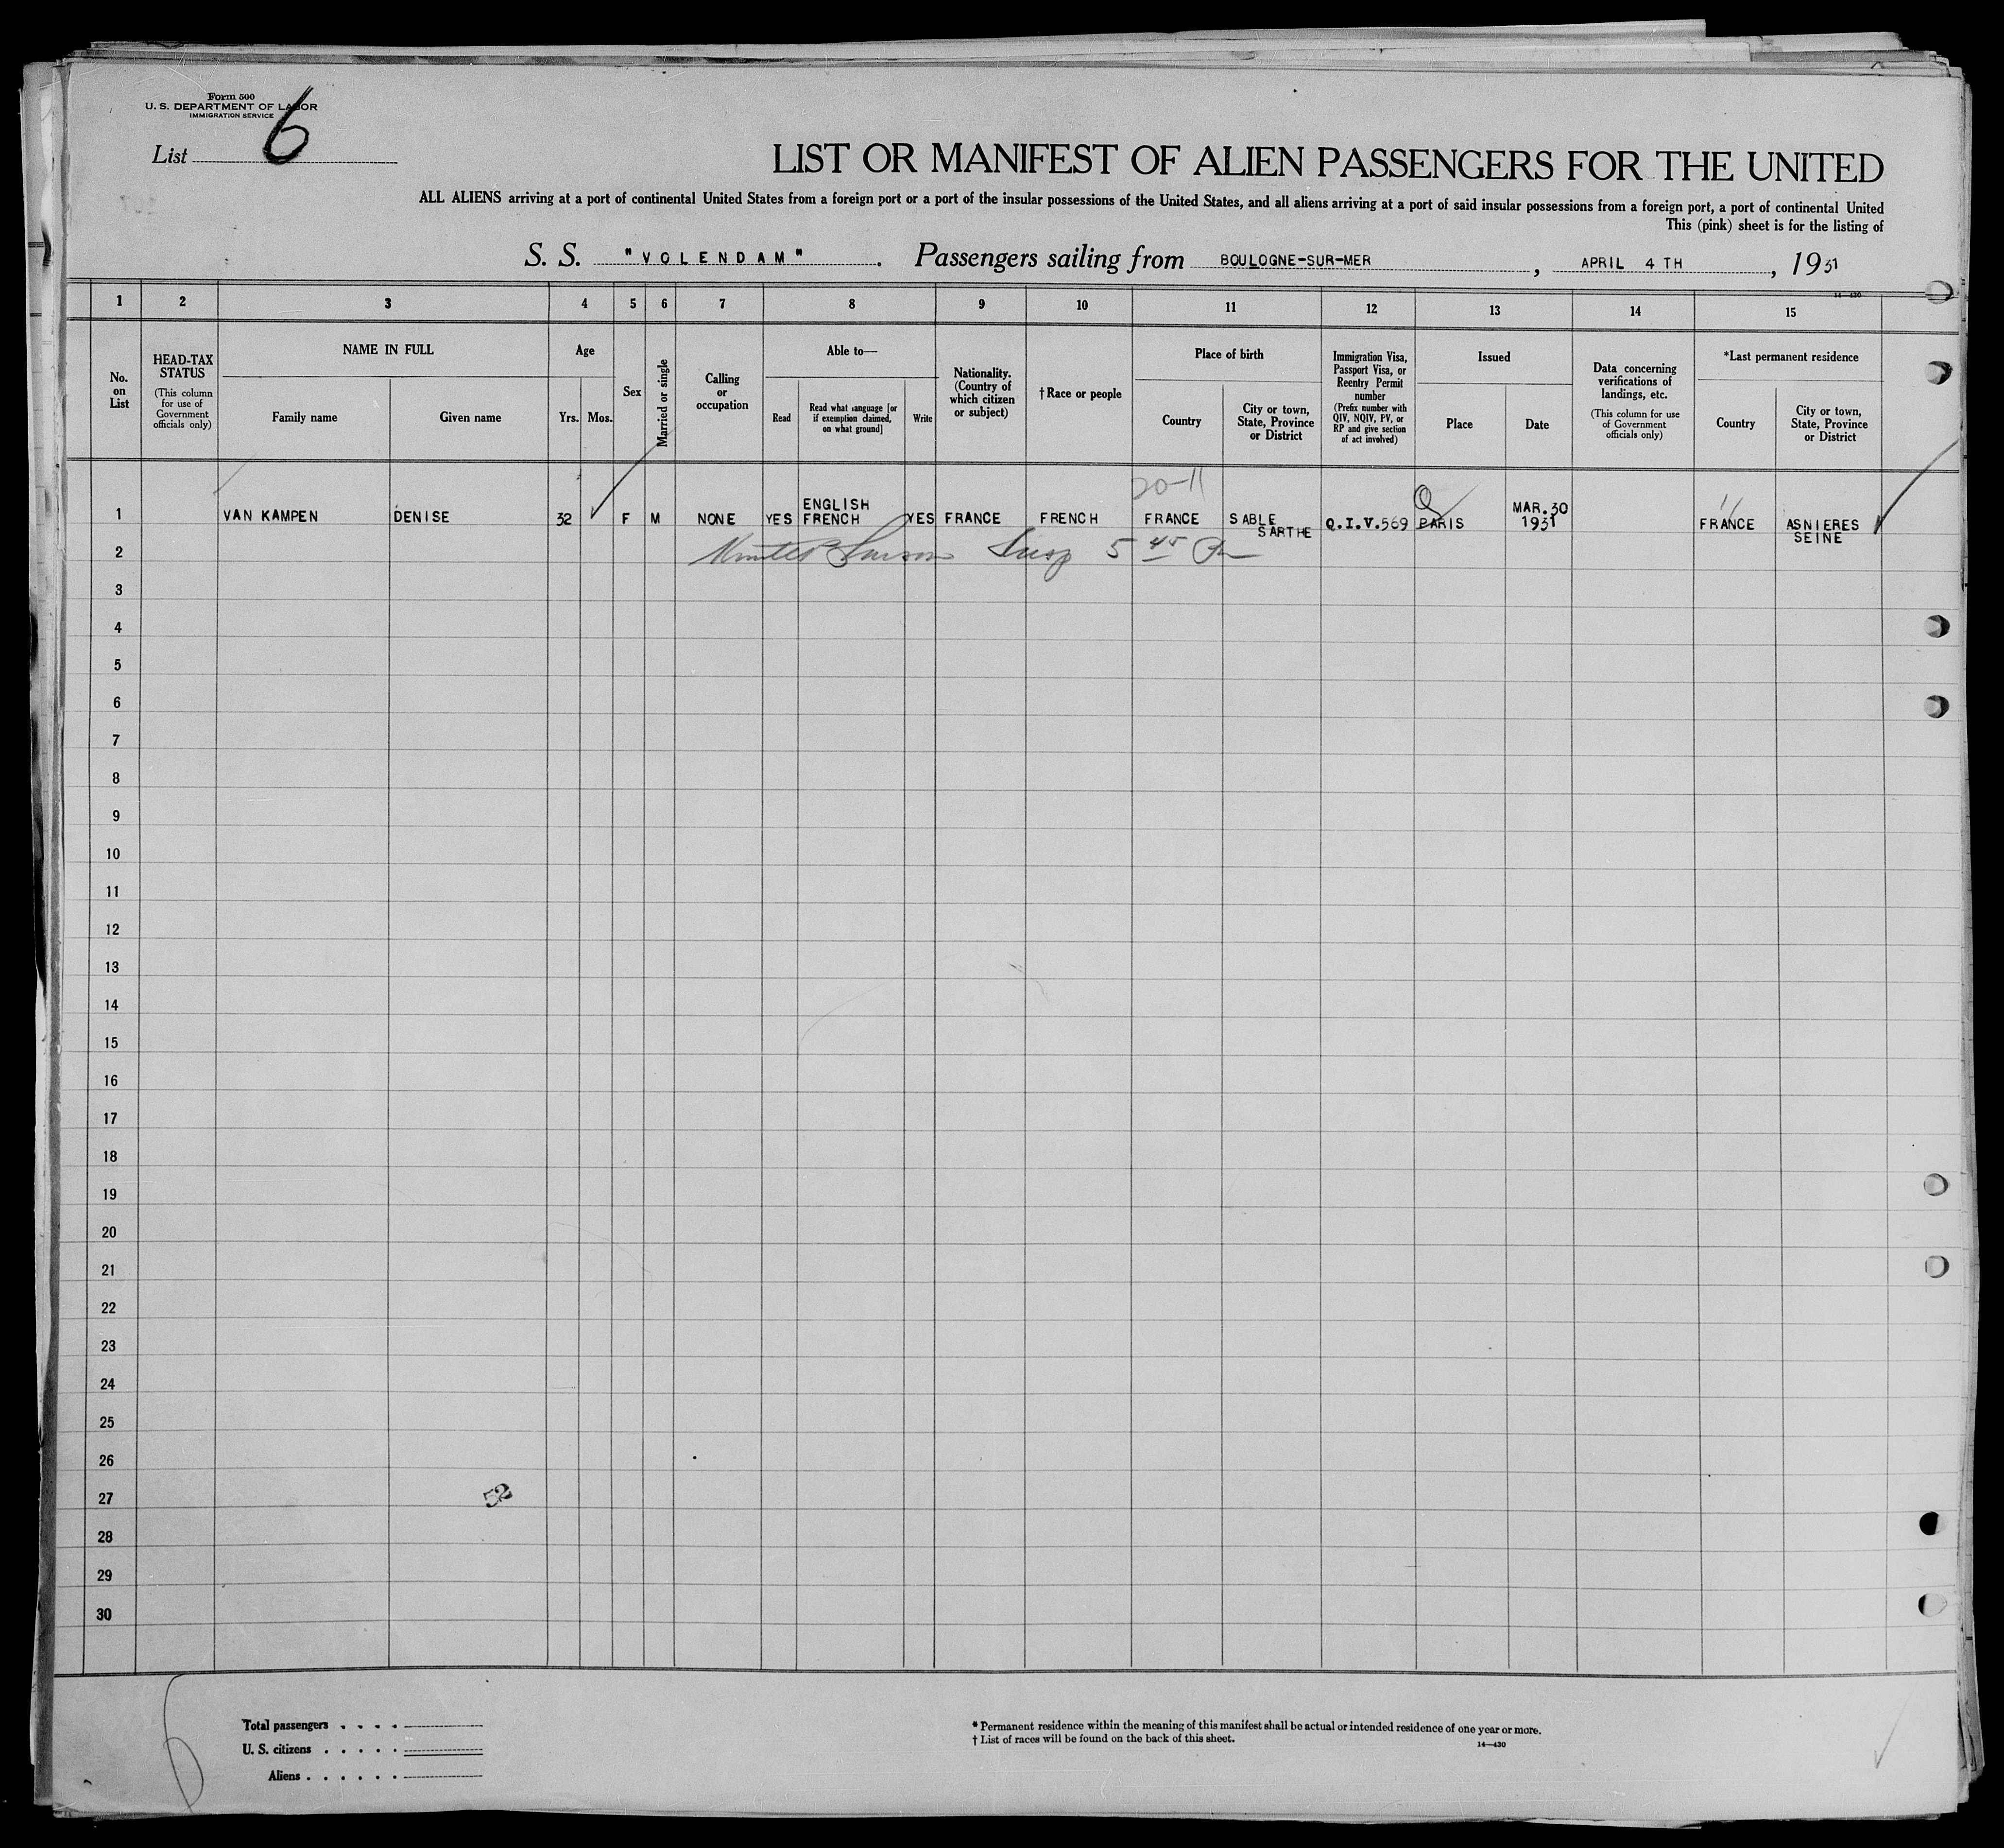 Form 500
U. S. DEPARTMENT OF LABOR
IMMIGRATION SERVICE
List 6
LIST OR MANIFEST OF ALIEN PASSENGERS FOR THE UNITED
ALL ALIENS arriving at a port of continental United States from a foreign port or a port of the insular possessions of the United States, and all aliens arriving at a port of said insular possessions from a foreign port, a port of continental United
This (pink) sheet is for the listing of
S. S. "VOLENDAM". Passengers sailing from BOULOGNE-SUR-MER, APRIL 4 TH, 1931
14—430
1 2 3 4 5 6 7 8 9 10 11 12 13 14 15
No. on List
HEAD-TAX STATUS
(This column for use of Government officials only)
NAME IN FULL
Family name
Given name
Age
Yrs.
Mos.
Sex
Married or single
Calling or occupation
Able to—
Read
Read what language [or if exemption claimed, on what ground]
Write
Nationality. (Country of which citizen or subject)
† Race or people
Place of birth
Country
City or town, State, Province or District
Immigration Visa, Passport Visa, or Reentry Permit number
(Prefix number with QIV, NQIV, PV, or RP and give section of act involved)
Issued
Place
Date
Data concerning verifications of landings, etc.
(This column for use of Government officials only)
*Last permanent residence
Country
City or town, State, Province or District
20-11
1 VAN KAMPEN DENISE 32 F M NONE YES ENGLISH FRENCH YES FRANCE FRENCH FRANCE SABLE SARTHE Q.I.V.569 PARIS MAR.30 1931 FRANCE ASNIERES SEINE
2 Insp 5 45 Pm
3
4
5
6
7
8
9
10
11
12
13
14
15
16
17
18
19
20
21
22
23
24
25
26
27
52
28
29
30
Total passengers . . . .
U. S. citizens . . . . .
Aliens . . . . . .
* Permanent residence within the meaning of this manifest shall be actual or intended residence of one year or more.
† List of races will be found on the back of this sheet.
14—430